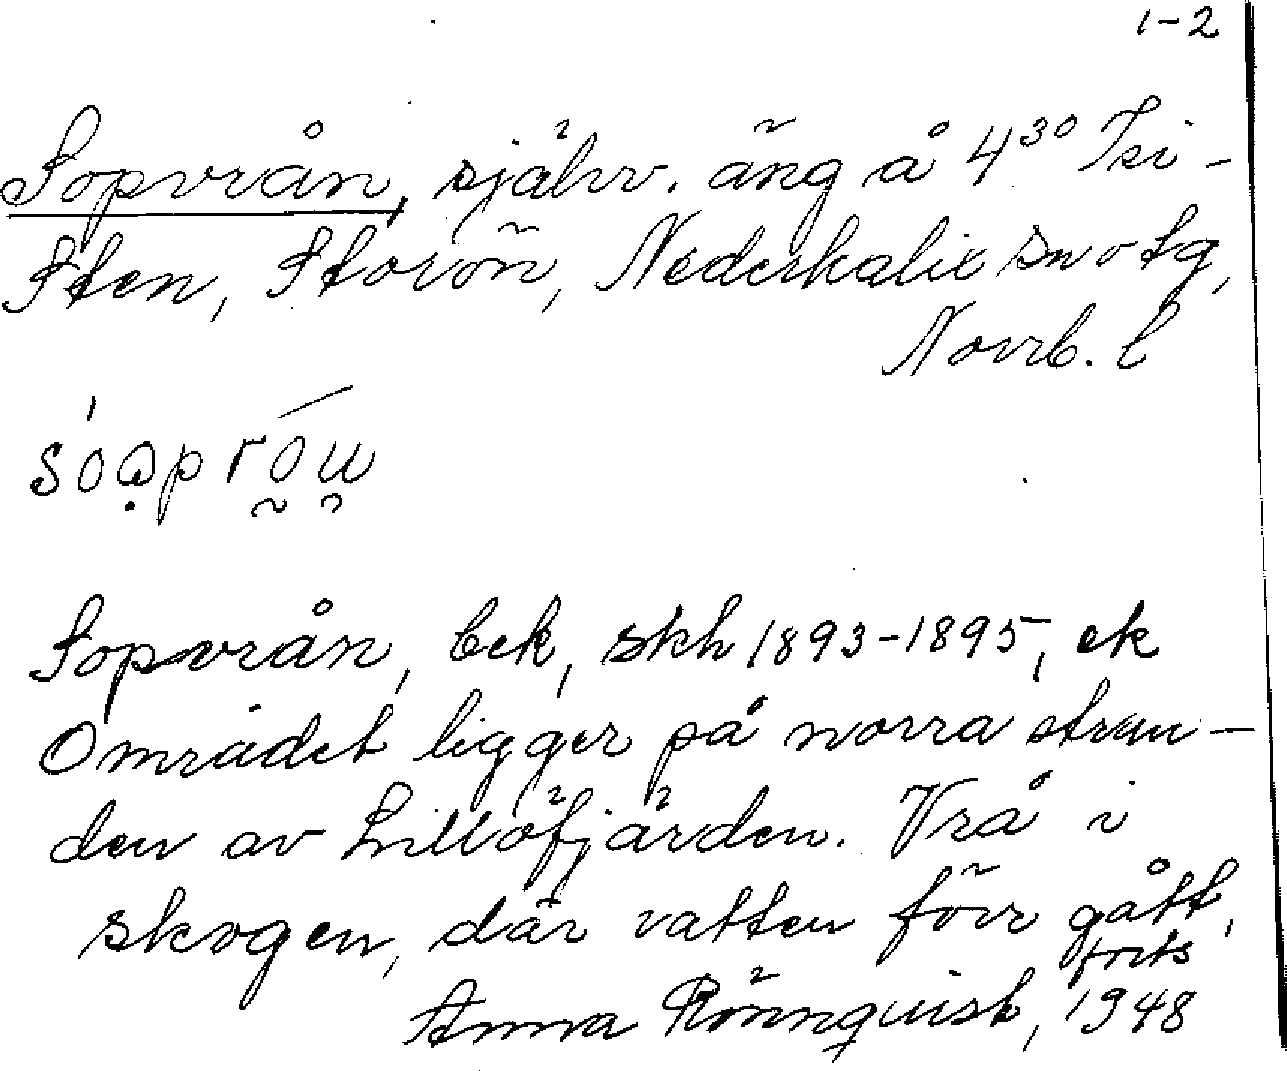 1-2
Sopvrån, självr. äng å 4³⁰ Tri-
sten, Storön, Nederkalix sn o tg,
Norrb. l
Sopvrån, bek, skh 1893-1895, ek
Området ligger på norra stran-
den av Lillöfjärden. Vrå i
skogen, där vatten förr gått,
forts
Anna Rönnquist, 1948